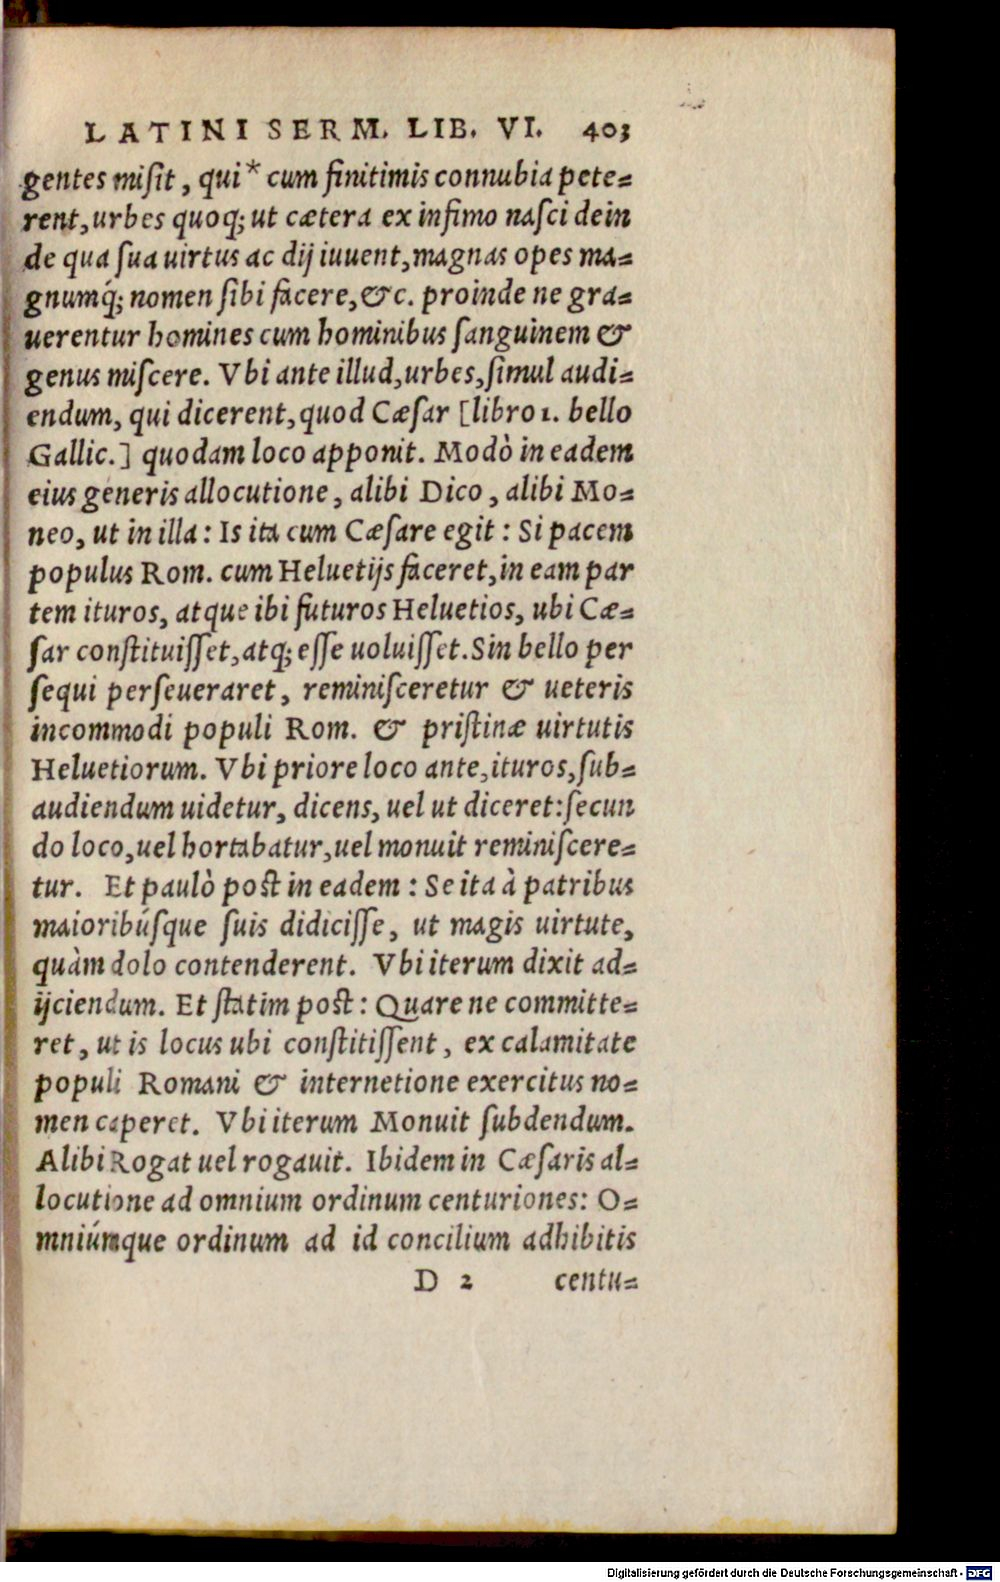 LATINI SERM. LIB. VI. 403
gentes misit, qui* cum finitimis connubia pete=
rent, urbes quoq; ut cætera ex infimo nasci dein
de qua sua uirtus ac dij iuuent, magnas opes ma=
gnumq́; nomen sibi facere, &c. proinde ne gra=
uerentur homines cum hominibus sanguinem &
genus miscere. Vbi ante illud, urbes, simul audi=
endum, qui dicerent, quod Cæsar [libro 1. bello
Gallic.] quodam loco apponit. Modò in eadem
eius generis allocutione, alibi Dico, alibi Mo=
neo, ut in illa: Is ita cum Cæsare egit: Si pacem
populus Rom. cum Heluetijs faceret, in eam par
tem ituros, atque ibi futuros Heluetios, ubi Cæ=
sar constituisset, atq; esse uoluisset. Sin bello per
sequi perseueraret, reminisceretur & ueteris
incommodi populi Rom. & pristinæ uirtutis
Heluetiorum. Vbi priore loco ante, ituros, sub=
audiendum uidetur, dicens, uel ut diceret: secun
do loco, uel hortabatur, uel monuit reminiscere=
tur. Et paulò post in eadem: Se ita à patribus
maioribúsque suis didicisse, ut magis uirtute,
quàm dolo contenderent. Vbi iterum dixit ad=
ijciendum. Et statim post: Quare ne committe=
ret, ut is locus ubi constitissent, ex calamitate
populi Romani & internetione exercitus no=
men caperet. Vbi iterum Monuit subdendum.
Alibi Rogat uel rogauit. Ibidem in Cæsaris al=
locutione ad omnium ordinum centuriones: O=
mniúmque ordinum ad id concilium adhibitis
D 2 centu=
Digitalisierung gefördert durch die Deutsche Forschungsgemeinschaft - DFG